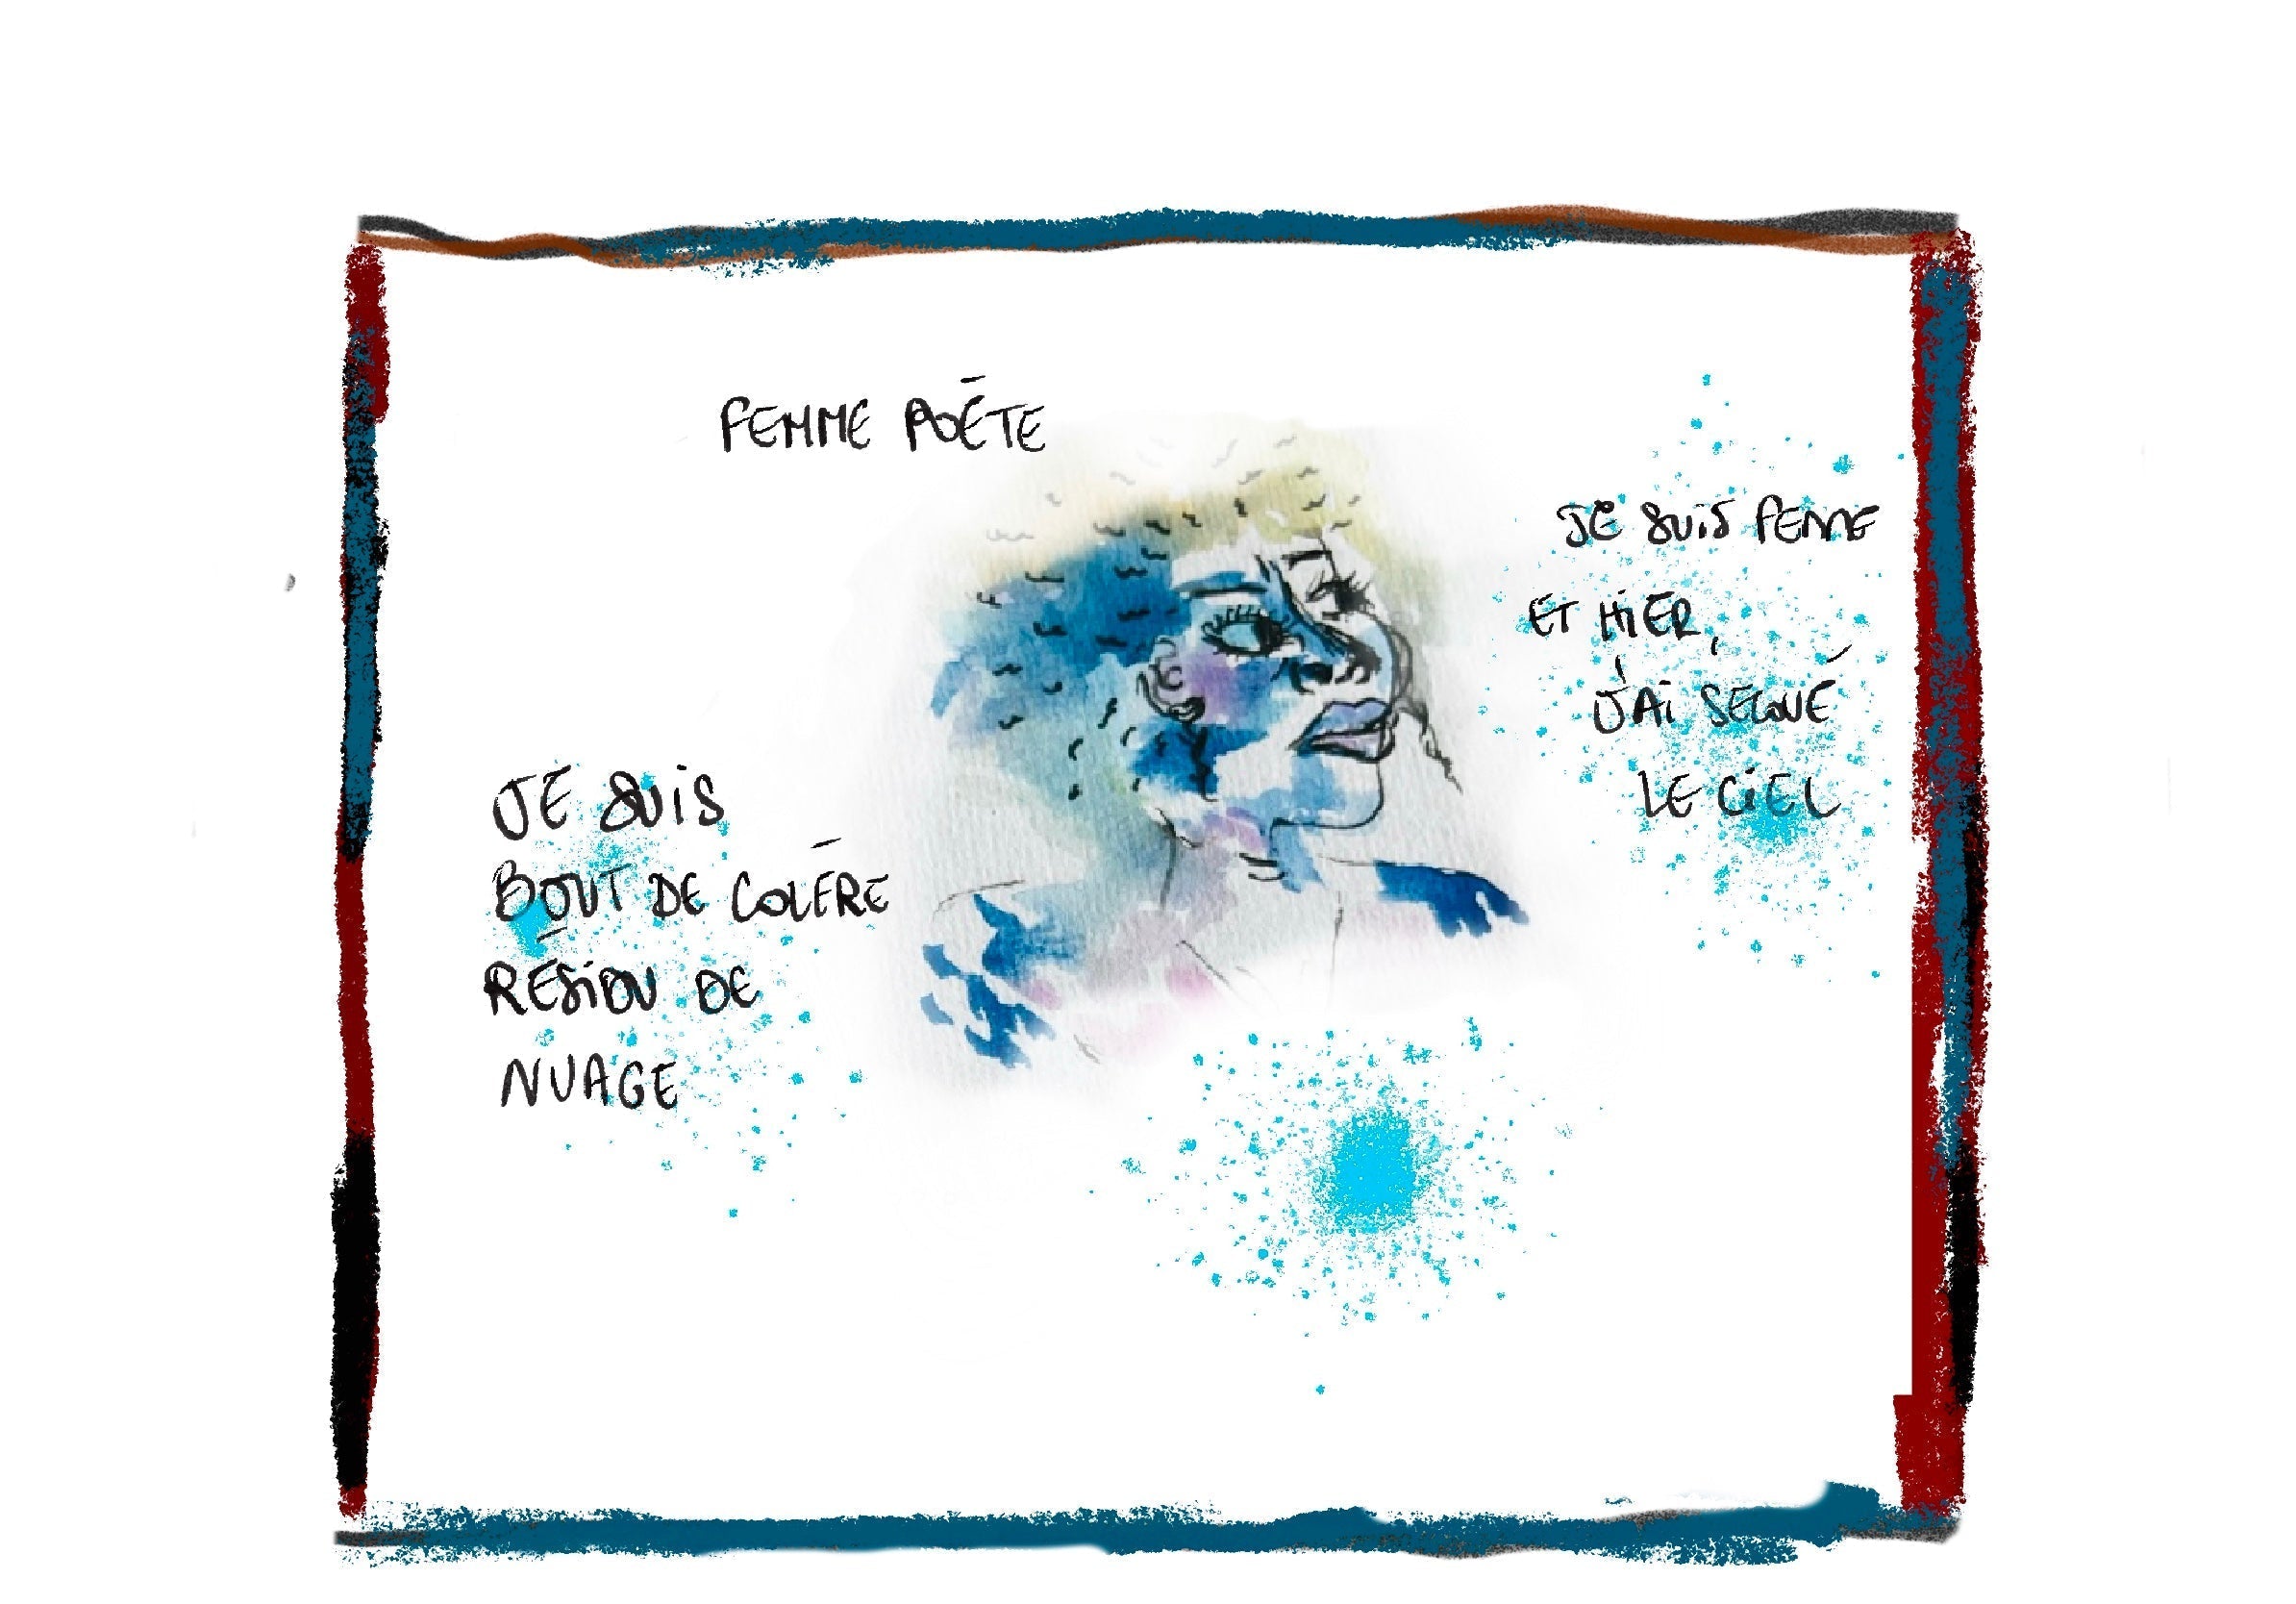 FEMME POÉTE
JE SUIS
BOUT DE COLÉRE
RÉSIDU DE
NUAGE
JE SUIS FEMME
ET HIER,
J'AI SECOUÉ
LE CIEL